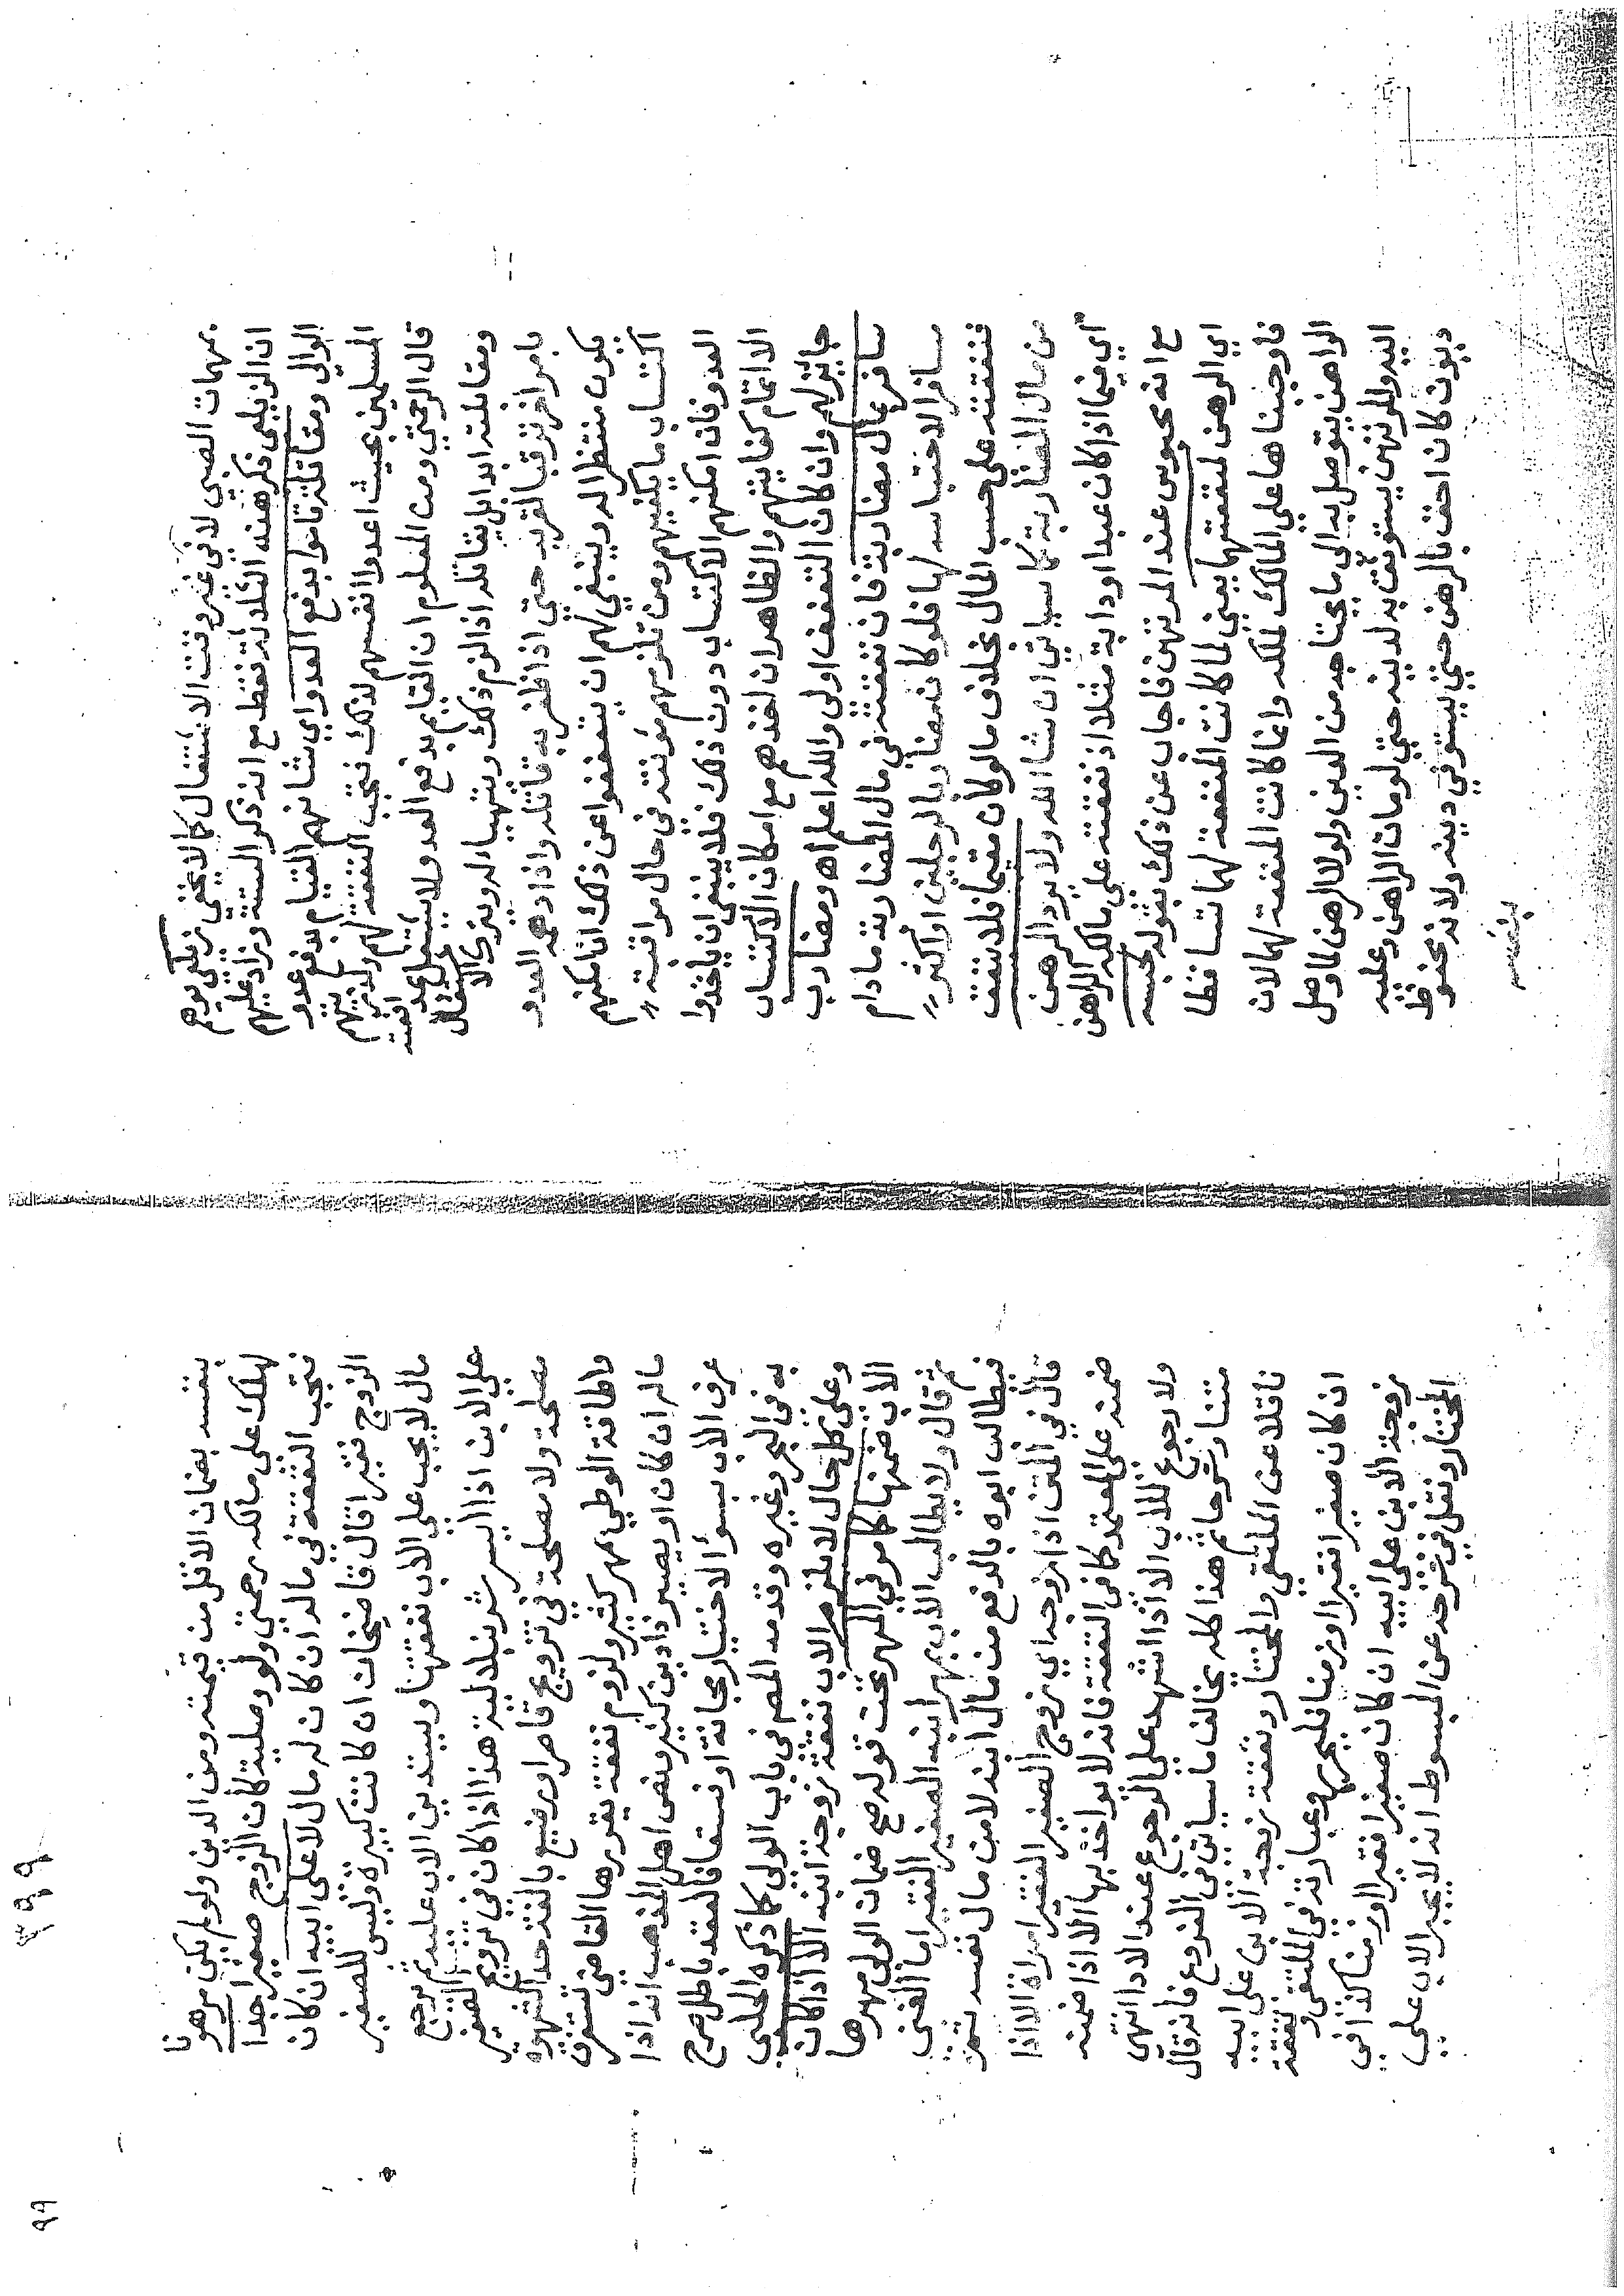 بمهمات الصبي لا في غير وقت الاشتغال كما لا يخفي زيلعي يوهم
ان الزيلعي ذكر هذه الثلاثة فقط مع انه ذكر الستة وزاد عليهم
الوالي ومقاتلة قاموا بدفع العدو اي شانهم القيام بدفع عدو
المسلمين بحيث اعدوا انفسهم لذلك فتجب النفقة لهم ولذريتهم
قال الرحمتي ومن المعلوم ان القايم بدفع العدو لا يشتغل بمدافعته
ومقابلته ابدا بل يقاتله اذا لزم ذلك ويتهيا له ويترك الاشتغال
بامر اخر ترقبا لقربه حتي اذا ظفر به قاتله واذا دهمه العدو
يكون منتظرا له وينبغي لهم ان يتعففوا عن ذلك ان امكنهم
اكتساب ما يكفيهم ومن تلزمهم مؤنته في حال مراقبة
العدو فان امكنهم الاكتساب دون ذلك فلا ينبغي ان ياخذوا
الا اتمام كفايتهم والظاهر ان اخذهم مع امكان الاكتساب
جائز لهم وان كان التعفف اولي والله اعلم اه ومضارب
سافر بمال مضاربة فان نفقته في مال المضاربة ما دام
مسافرا لاحتباسه لها فلو كان مضاربا لرجلين او اكثر
فنفقته علي حسب المال بخلاف ما لو كان مقيما فلا نفقة
من مال المضاربة كما سياتي ان شا الله ولا يرد الرهن
اي فيما اذا كان عبدا او دابة مثلا اذ نفقته علي مالكه الراهن
مع انه محبوس عند المرتهن فاجاب عن ذلك بقوله لحبسه
اي الرهن لمنفعتهما يعني لما كانت المنفعة لهما تساقطا
فاوجبناها علي المالك لملكه وانما كانت المنفعة لهما لان
الراهن يتوصل به الي ما يحتاجه من الدين ولولا الرهن لما وصل
اليه وللمرتهن يستوثق به لدينه حتي لو مات الراهن وعليه
ديون كان احق بالرهن حتي يستوفي دينه ولانه محفوظ
بنفسه
٩٩
بنفسه بضمان الاقل من قيمته ومن الدين ولو لم يكن مرهونا
لهلك علي مالكه رحمتي ولو وصلية كان الزوج صغيرا جدا
فتجب النفقة في ماله ان كان له مال لا علي ابيه ان كان
الزوج فقيرا قال قاضيخان ان كانت كبيرة وليس للصغير
مال لا يجب علي الاب نفقتها ويستدين الاب عليه ثم يرجع
علي الابن اذا ايسر شرنبلالية هذا اذا كان في تزويج الصغير
مصلحة ولا مصلحة في تزويج قاصر او رضيع بالغة حد الشهوة
واطاقة الوطي بمهر كثير ولزوم نفقة يقررها القاضي تستغرق
ماله ان كان او يصير ذا دين كثير ونص اهل المذهب انه اذا
عرف الاب بسؤ الاختيار مجانة او فسقا فالعقد باطل صرح
به في البحر وغيره وقدمه المصم في باب الولي كما ذكره الحلبي
وعلي كل حال لا يلزم الاب نفقة زوجة ابنه الا اذا كان
الاب ضمنها كما مر في المهر تحت قوله صح ضمان الولي مهرها
ثم قال ولا يطالب الاب بمهر ابنه الصغير الفقير اما الغني
فيطالب ابوه بالدفع من مال ابنه لا من مال نفسه ثمة
قال في المتن اذا زوجه اي زوج الصغير الفقير امراة الا اذا
ضمنه علي المعتمد كما في النفقة فانه لا يواخذ بها الا اذا ضمنه
ولا رجوع للاب الا اذا اشهد علي الرجوع عند الادا انتهي
متنا وشرحا ثم هذا كله يخالف ما سياتي في الفروع فانه قال
ناقلا عن الملتقي والمختار ونفقة زوجة الابن علي ابيه
ان كان صغيرا فقيرا او زمنا فليحرر وعبارته في الملتقي ونفقة
زوجة الابن علي ابيه ان كان صغيرا فقيرا او زمنا كذا في
المختار ونقل في شرحه عن المبسوط انه لا يجبر الاب علي